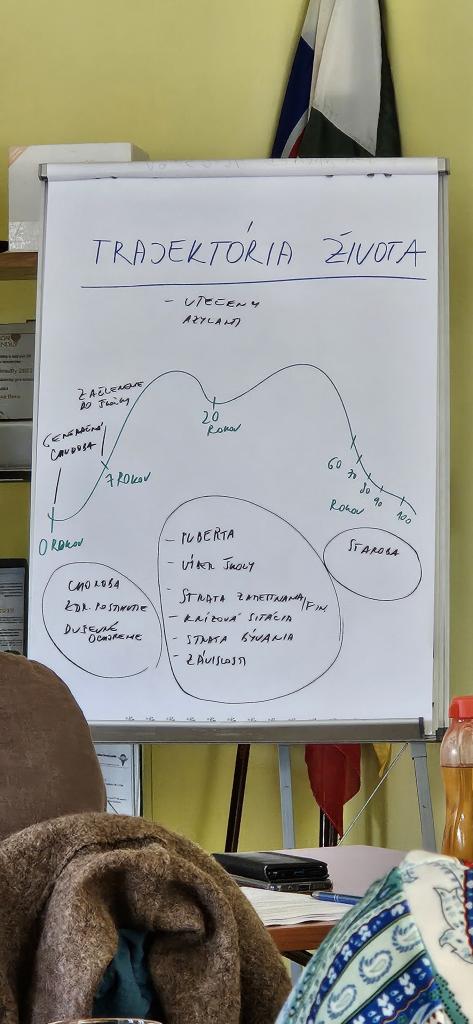 TRAJEKTÓRIA ŽIVOTA
- UTEČENCI
AZYLANTI
ZAČLENENIE
DO ŠKÔLKY
GENERAČNÁ
CHUDOBA
0 ROKOV
7 ROKOV
20
ROKOV
60
70
80
90
100
ROKOV
CHOROBA
ZDR. POSTIHNUTIE
DUŠEVNÉ
OCHORENIE
- PUBERTA
- VÝBER ŠKOLY
- STRATA ZAMESTNANIA/FIN
- KRÍZOVÁ SITÁCIA
- STRATA BÝVANIA
- ZÁVISLOSTI
STAROBA